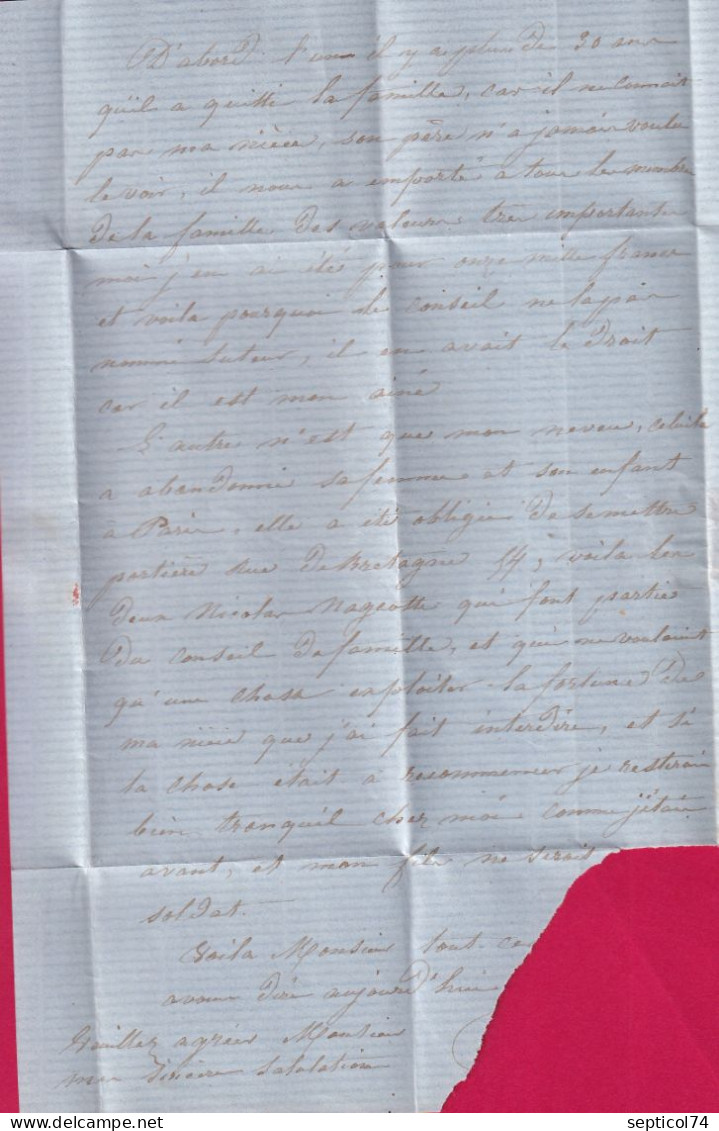 D'abord l'un il y a plus de 30 ans
qu'il a quitté la famille, car il ne connait
pas ma nièce, son père n'a jamais voulu
le voir, il nous a emporté à tous les membres
de la famille des valeurs très importante
moi j'en ai été pour onze mille francs
et voila pourquoi le conseil ne la pas
nommé tuteur, il en avait le droit
car il est mon ainé
L'autre n'est que mon neveu, celui la
a abandonné sa femme et son enfant
à Paris, elle a été obligée de se mettre
portière rue de Bretagne 54, voila les
deux Nicolas Nageotte qui font partie
du conseil de famille, et qui ne voulaient
qu'une chose exploiter la fortune de
ma nièce que j'ai fait interdire, et si
la chose était à recommencer je resterais
bien tranquil chez moi comme j'étais
avant, et mon fils ne serait
soldat.
Voila Monsieur tout ce
avons dire aujourd'hui
Veuillez agréer Monsieur
mon sincère salutation
septicol74